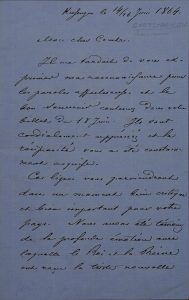 14/26 Juin 1864.
Mon cher Comte,
Il me tardait de vous ex-
primer ma reconnaissance pour
les paroles affectueuses et le
bon souvenir contenus dans votre
billet du 18 Juin. Ils sont
cordialement appréciés et la
réciprocité vous a été constam-
ment acquise.
Ces lignes vous parviendront
dans un moment bien critique
et bien important pour votre
pays. Nous avons été témoins
de la profonde émotion avec
laquelle le Roi et la Reine
ont reçu la triste nouvelle